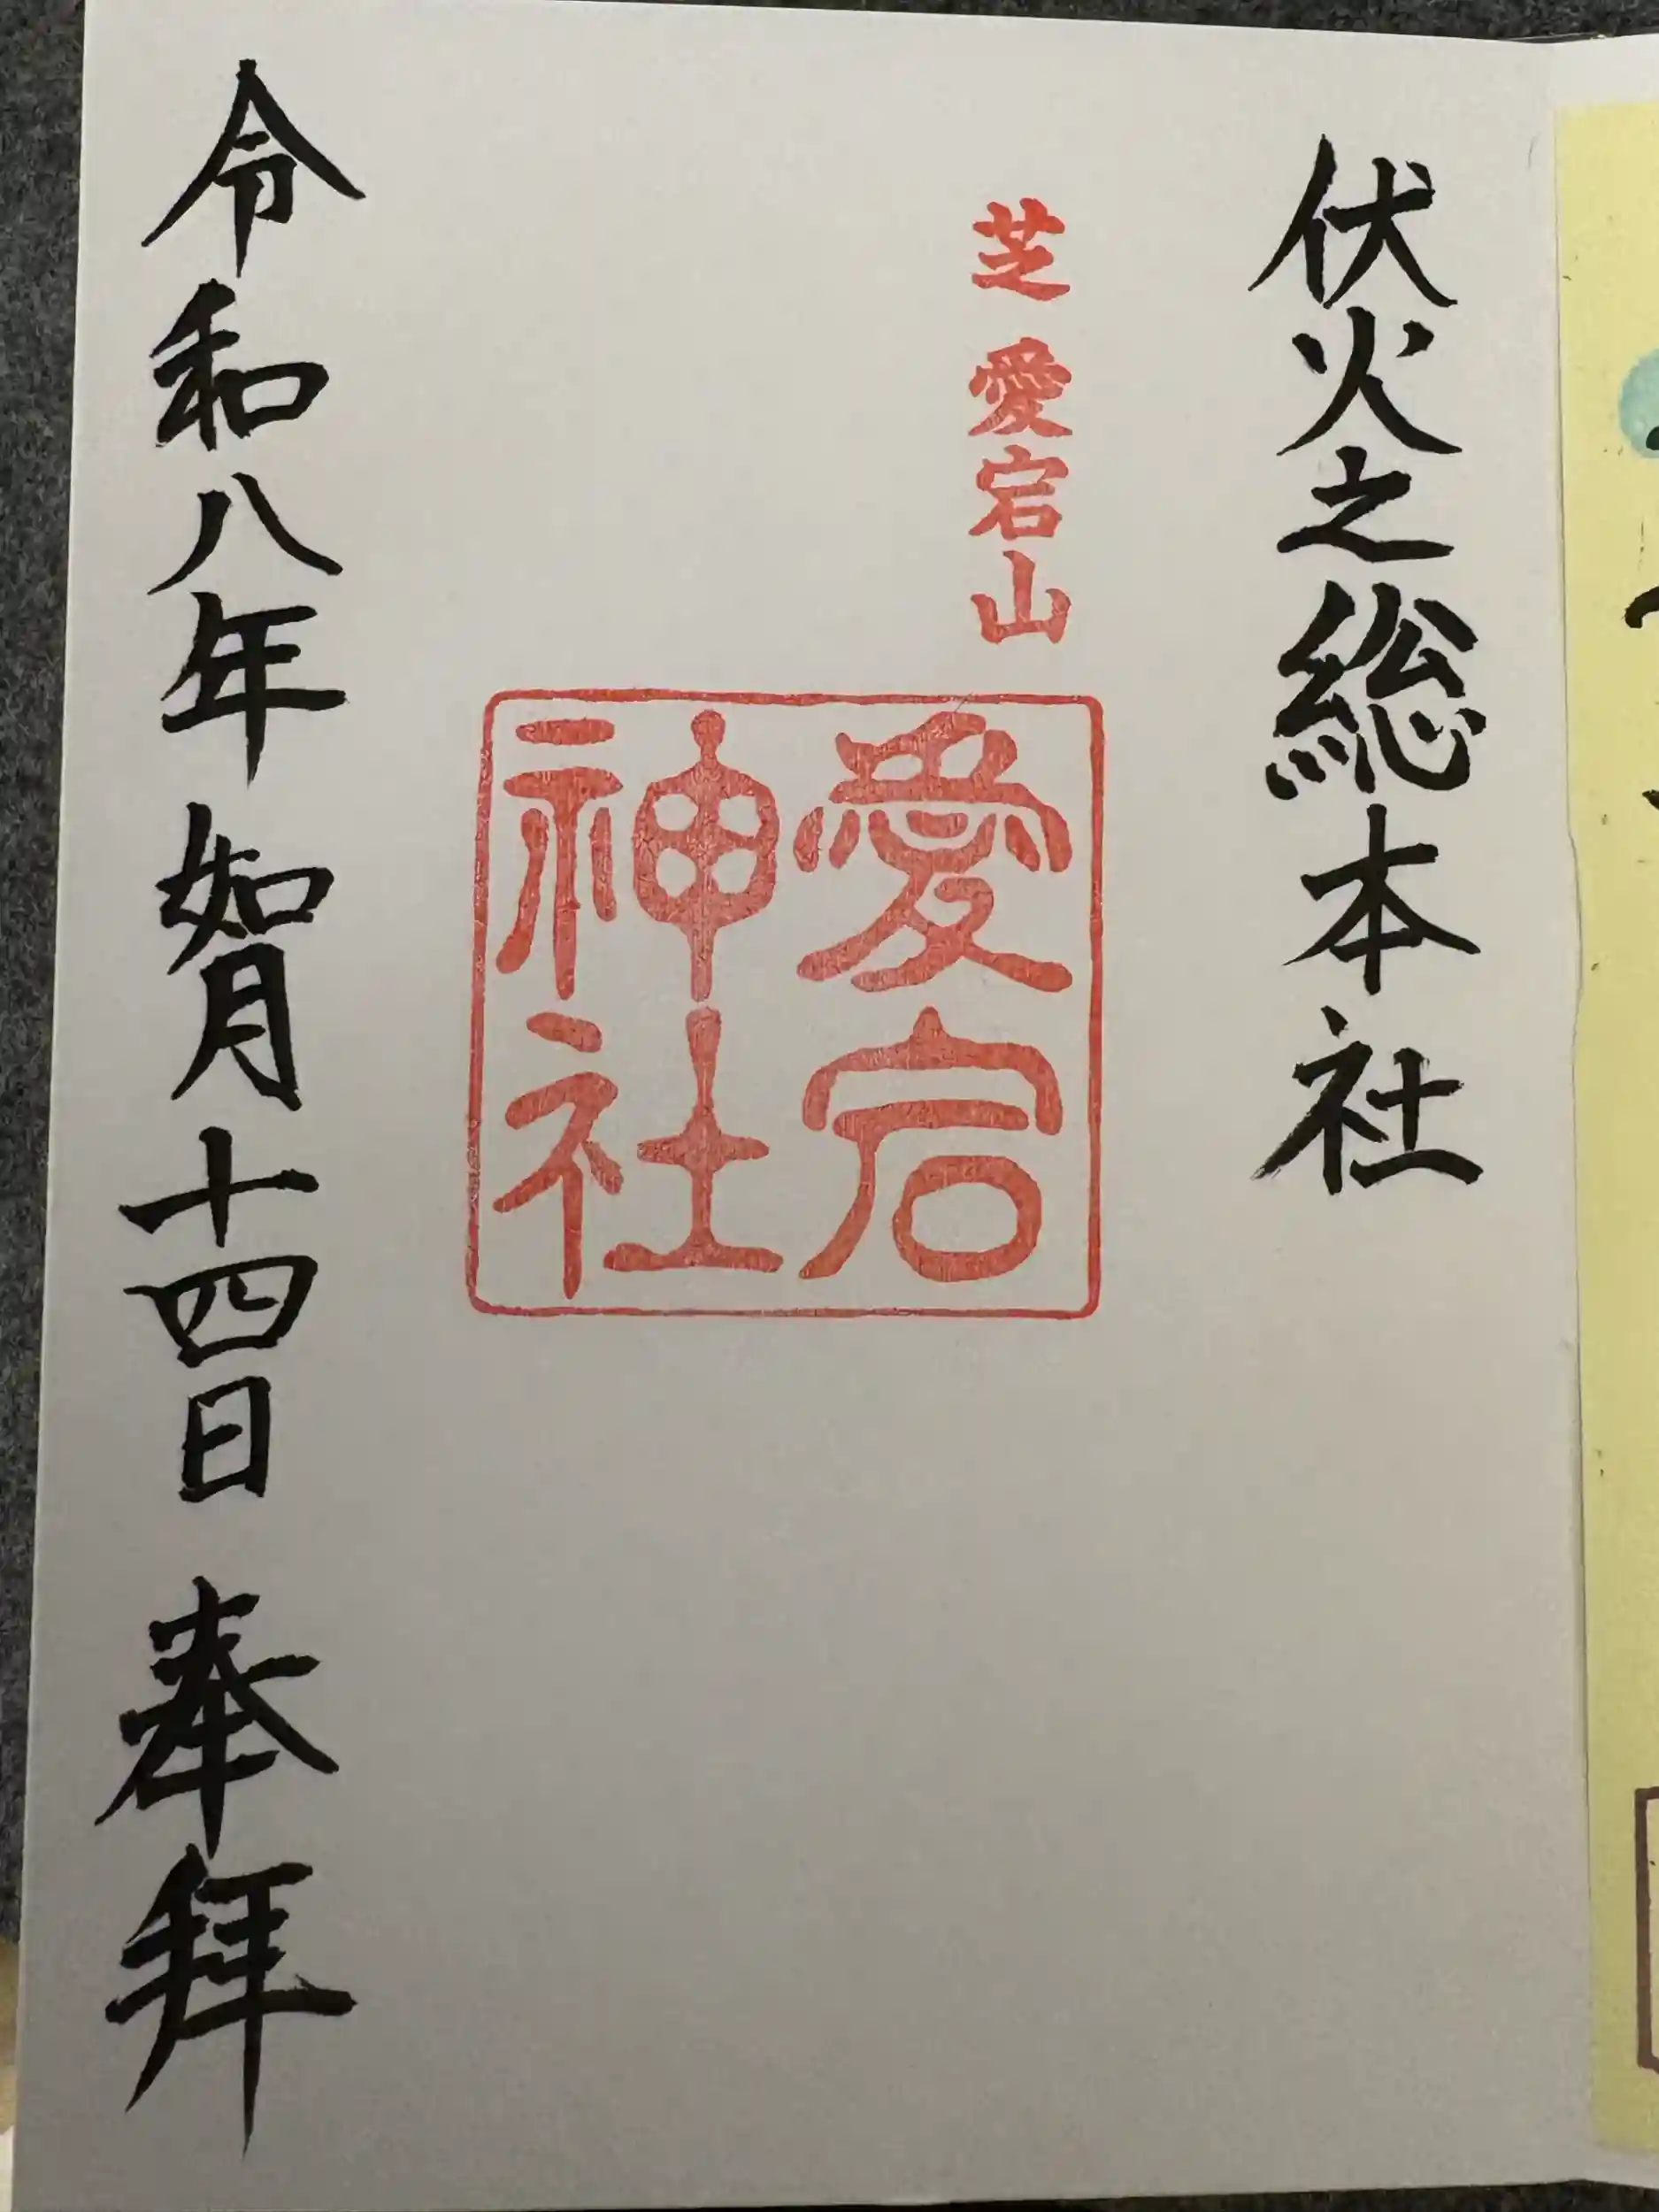 伏火之総本社
芝 愛宕山
愛宕
神社
令和八年 如月十四日 奉拝